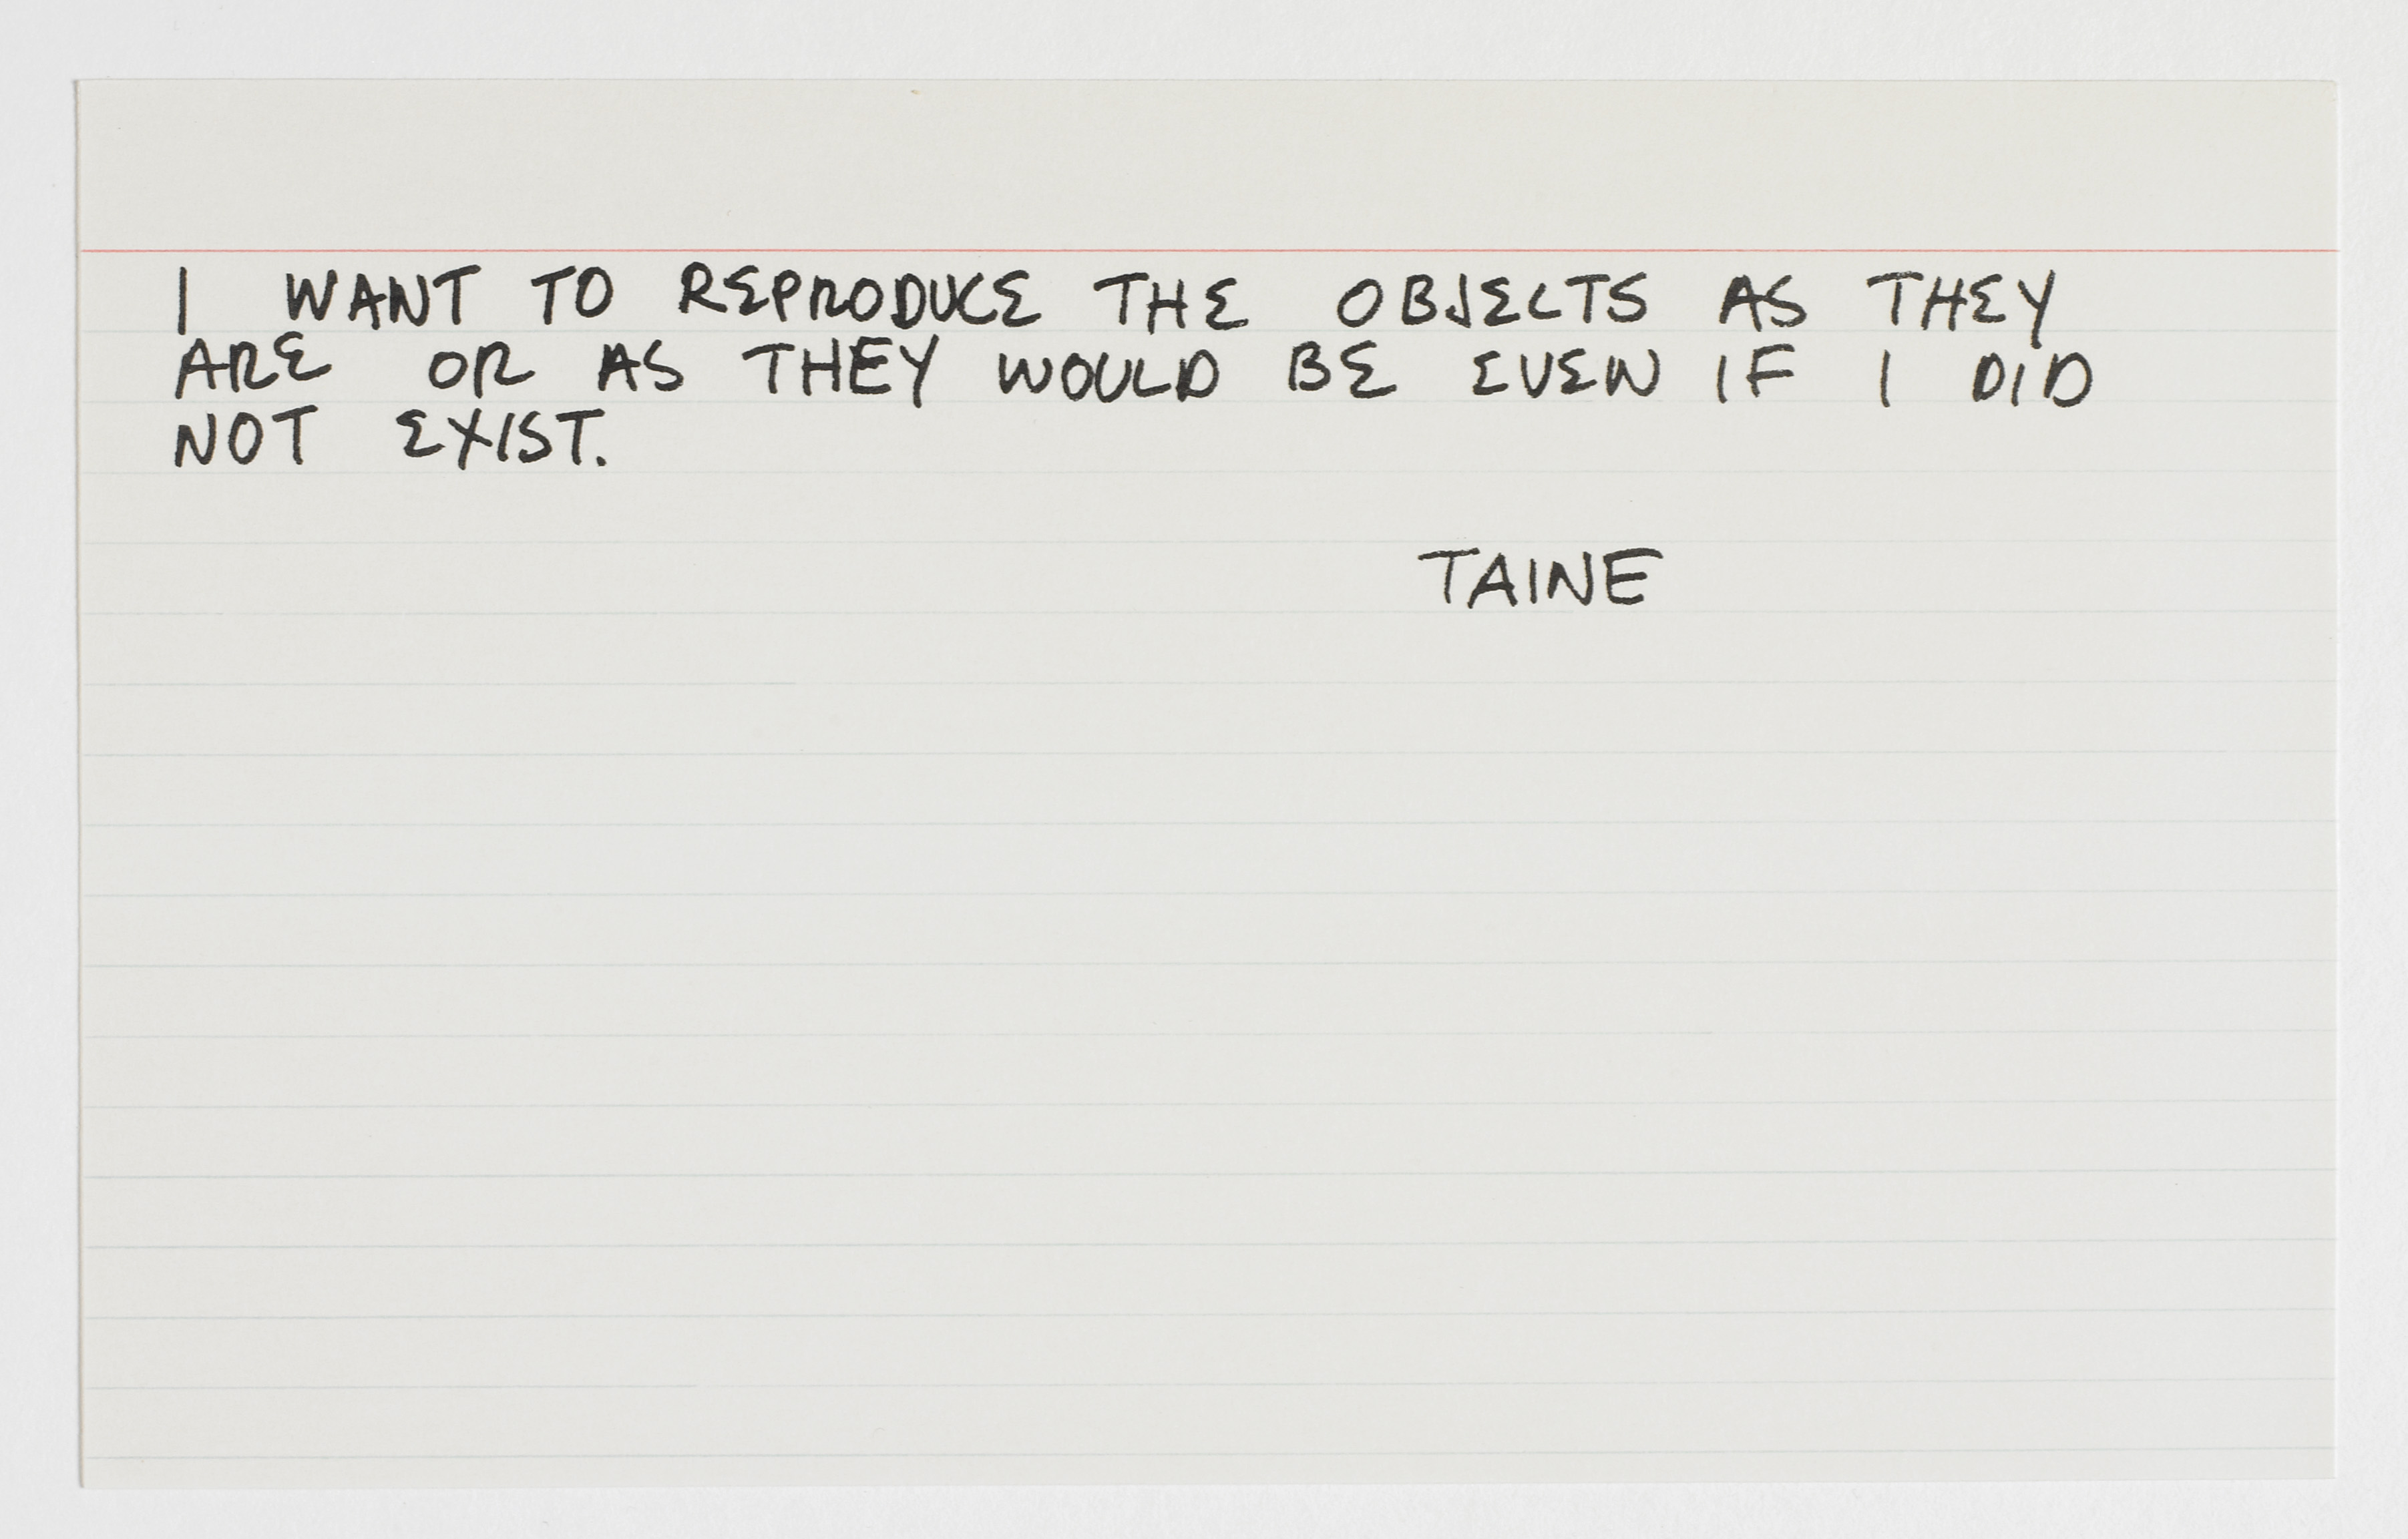 I WANT TO REPRODUCE THE OBJECTS AS THEY
ARE OR AS THEY WOULD BE EVEN IF I DID
NOT EXIST.
TAINE